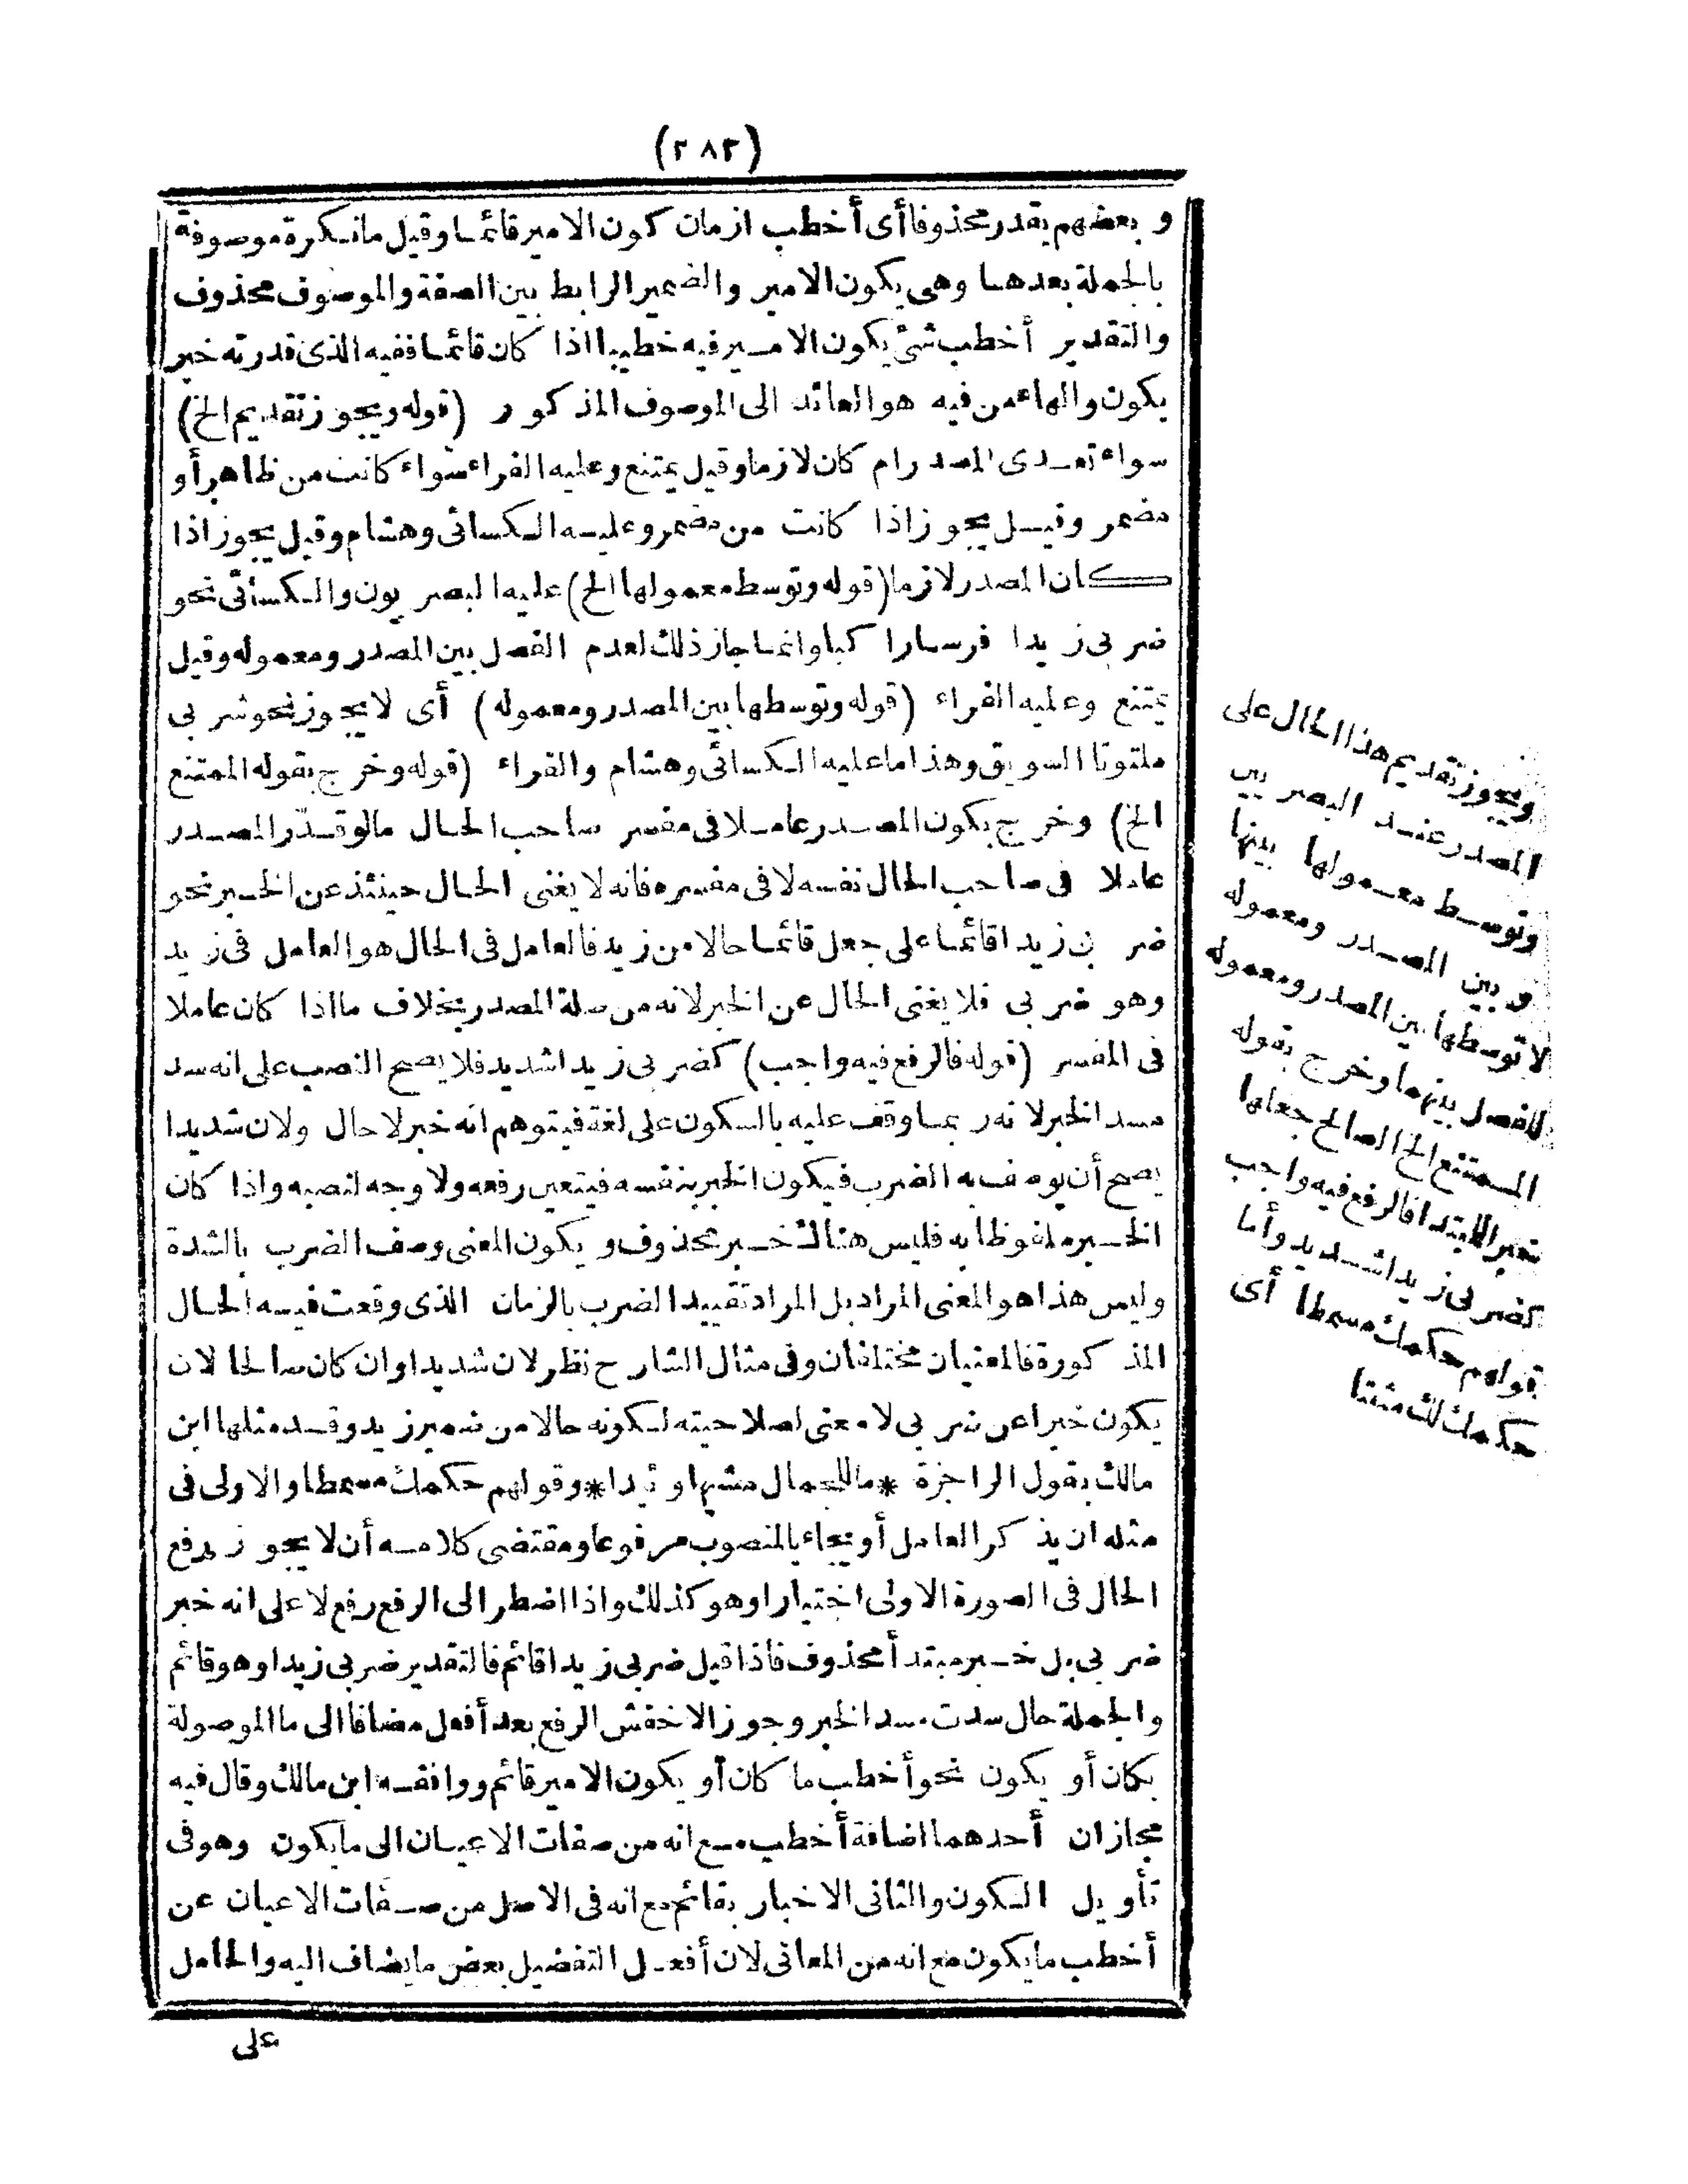 (٢٨٢)
و بعضهم يقدر محذوفا أى أخطب ازمان كون الامير قائما وقيل ما نكرة موصوفة
بالجملة بعدها وهى يكون الامير والضمير الرابط بين الصفة والموصوف محذوف
والتقدير أخطب شئ يكون الامير فيه خطيبا اذا كان قائما ففيه الذى قدرته خبر
يكون والهاء من فيه هو العائد الى الموصوف المذكور (قوله ويجوز تقديم الخ)
سواء تعدى المصدر ام كان لازما وقيل يمتنع وعليه الفراء سواء كانت من ظاهر أو
مضمر وقيل يجوز اذا كانت من مضمر وعليه الكسائى وهشام وقيل يجوز اذا
كان المصدر لازما (قوله وتوسط معمولها الخ) عليه البصريون والكسائى نحو
ضربى زيدا فرسا راكبا وانما جاز ذلك لعدم الفصل بين المصدر ومعموله وقيل
يمتنع وعليه الفراء (قوله وتوسطها بين المصدر ومعموله) أى لا يجوز نحو شربى
ملتوتا السويق وهذا ما عليه الكسائى وهشام والفراء (قوله وخرج بقوله الممتنع
الخ) وخرج بكون المصدر عاملا فى مفسر صاحب الحال مالو قدّر المصدر
عاملا فى صاحب الحال نفسه لا فى مفسره فانه لا يغنى الحال حينئذ عن الخبر نحو
ضربى زيدا قائما على جعل قائما حالا من زيد فالعامل فى الحال هو العامل فى زيد
وهو ضربى فلا يغنى الحال عن الخبر لانه من صلة المصدر بخلاف ما اذا كان عاملا
فى المفسر (قوله فالرفع فيه واجب) كضربى زيدا شديد فلا يصح النصب على انه سد
مسد الخبر لانه ربما وقف عليه بالسكون على لغة فيتوهم انه خبر لا حال ولان شديدا
يصح أن يوصف به الضرب فيكون الخبر بنفسه فيتعين رفعه ولا وجه لنصبه واذا كان
الخبر ملفوظا به فليس هناك خبر محذوف و يكون المعنى وصف الضرب بالشدة
وليس هذا هو المعنى المراد بل المراد تقييد الضرب بالزمان الذى وقعت فيه الحال
المذكورة فالمعنيان مختلفان وفى مثال الشارح نظر لان شديدا وان كان صالحا لان
يكون خبرا عن ضربى لا معنى لصلاحيته لكونه حالا من ضمير زيد وقد مثلها ابن
مالك بقول الراجزة *ما للجمال مشيها وئيدا* وقولهم حكمك مسمطا والاولى فى
مثله ان يذكر العامل أو يجاء بالمنصوب مرفوعا ومقتضى كلامه أن لا يجوز رفع
الحال فى الصورة الاولى اختيارا وهو كذلك واذا اضطر الى الرفع رفع لا على انه خبر
ضربى بل خبر مبتدأ محذوف فاذا قيل ضربى زيدا قائم فالتقدير ضربى زيدا وهو قائم
والجملة حال سدت مسد الخبر وجوز الاخفش الرفع بعد أفعل مضافا الى ما الموصولة
بكان أو يكون نحو أخطب ما كان أو يكون الامير قائم ووافقه ابن مالك وقال فيه
مجازان أحدهما اضافة أخطب مع انه من صفات الاعيان الى ما يكون وهو فى
تأويل الكون والثانى الاخبار بقائم مع انه فى الاصل من صفات الاعيان عن
أخطب ما يكون مع انه من المعانى لان أفعل التفضيل بعض ما يضاف اليه والحامل
على
ويجوز تقديم هذا الحال على
المصدر عند البصريين
وتوسط معمولها بينها
و بين المصدر ومعموله
لا توسطها بين المصدر ومعموله
للفصل بينهما وخرج بقوله
الممتنع الخ الصالح جعلها
خبر المبتدا فالرفع فيه واجب
كضربى زيدا شديد وأما
قولهم حكمك مسمطا أى
حكمك لك مثبتا